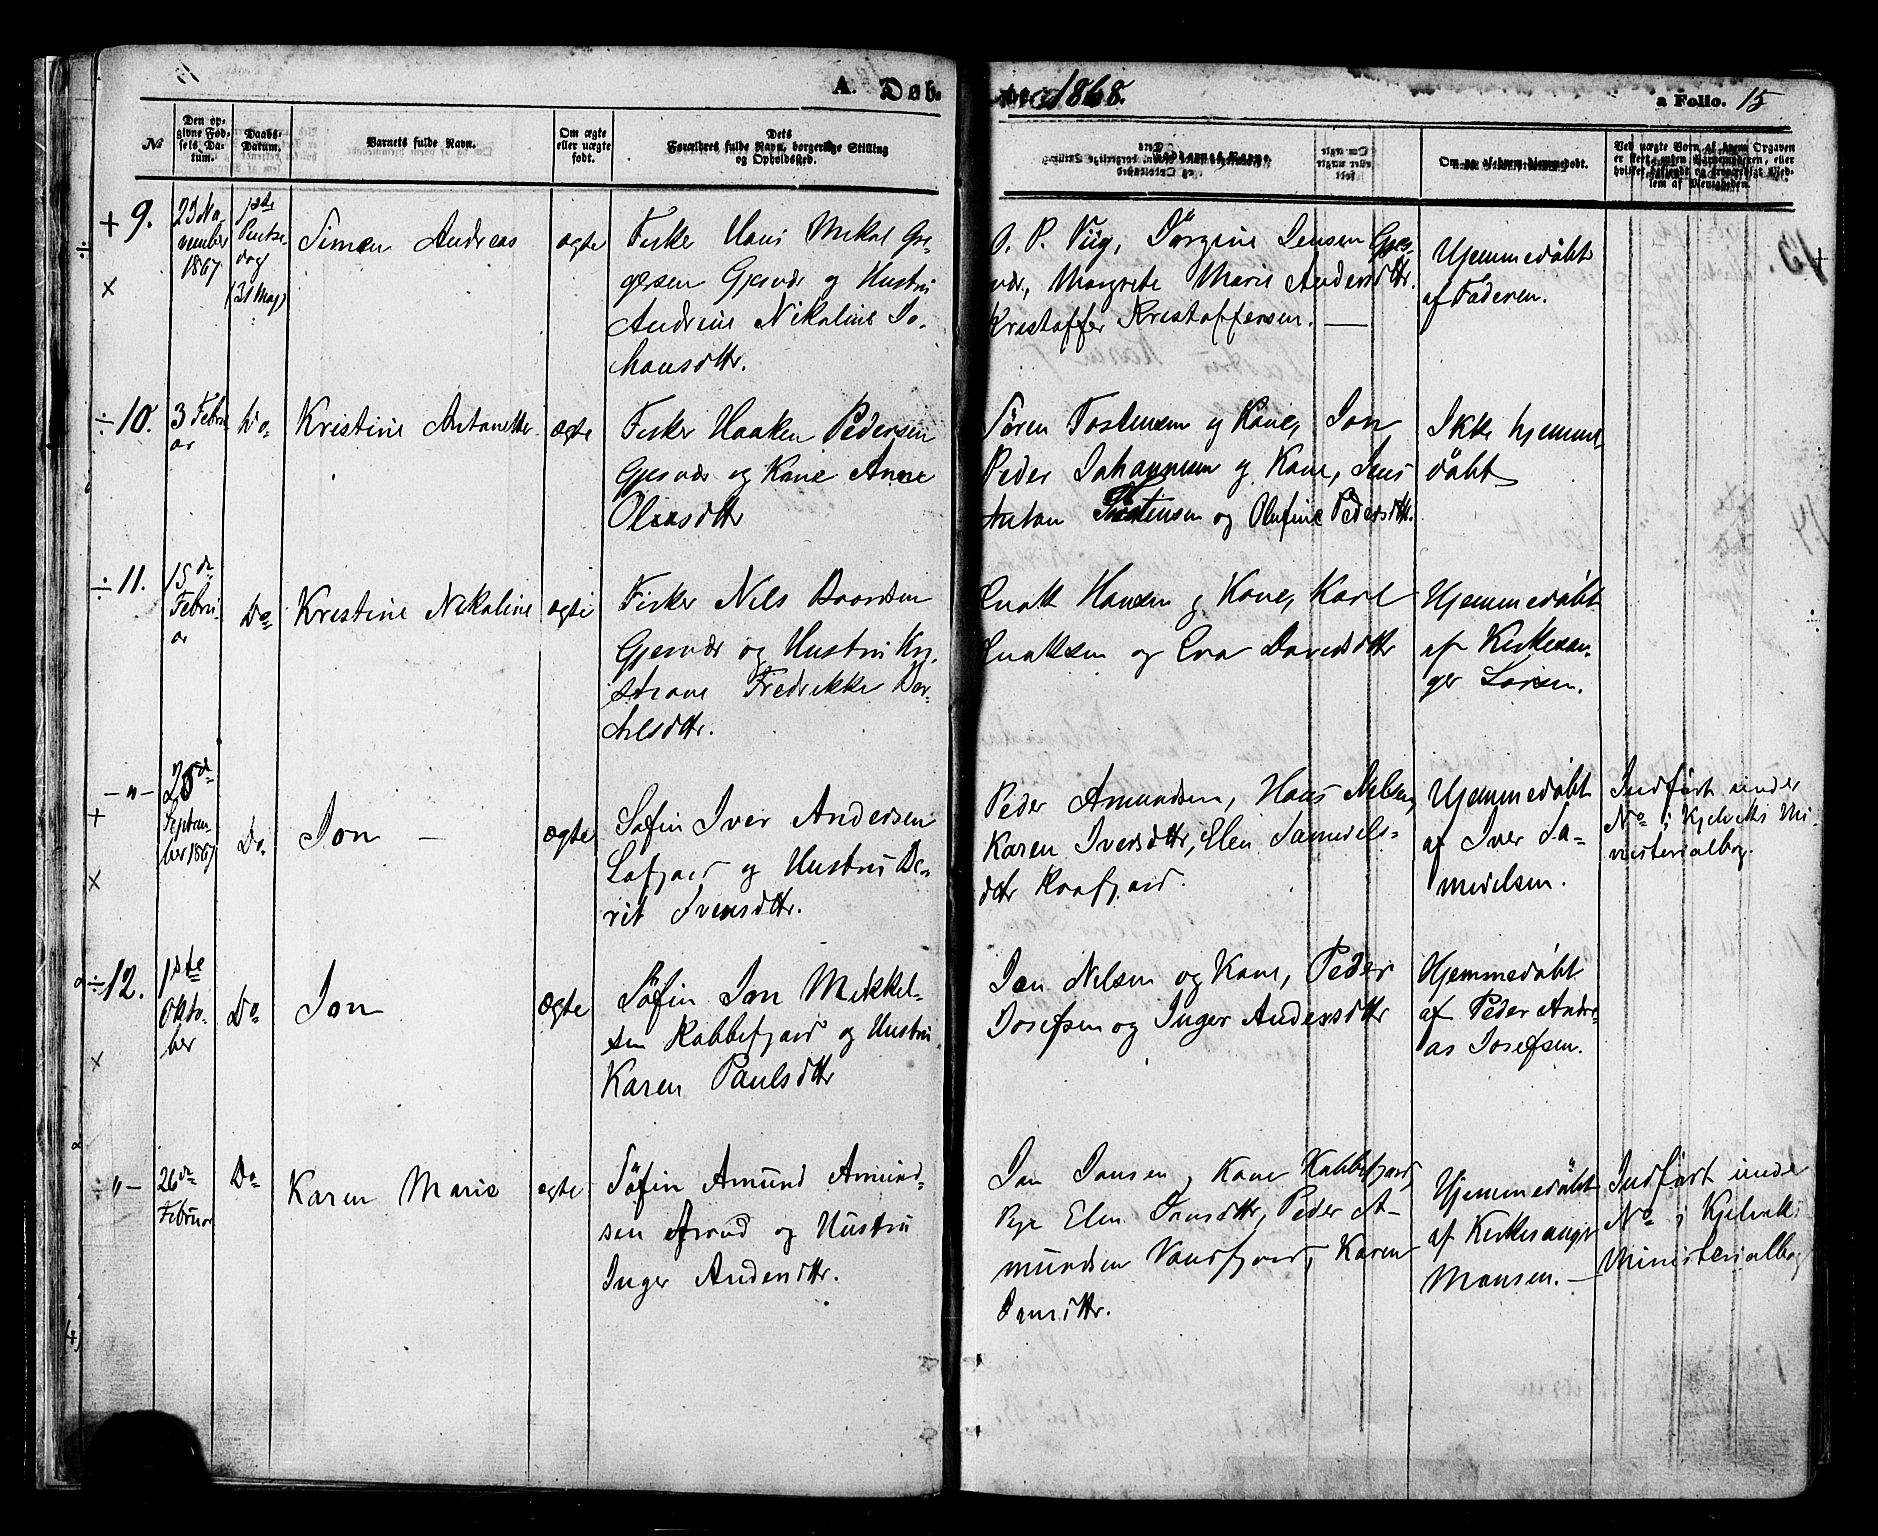 A. Døb.
1868.
a Folio. 15
№
Den op-
givne Fød-
sels Da-
tum.
Daabs-
Datum.
Barnets fulde Navn.
Om ægte
eller uægte
født.
Dets
Forældres fulde Navn, borgerlige Stilling
og Opholdssted.
Om og af hvem hjemmedøbt.
Ved uægte Børn af hvem Opgaven
+ 9.
23 No-
vember
1867
1ste
Pintse-
dag
(31 Maj)
Simon Andreas
ægte
Fisker Hans Mikal Gre-
gersen Gjesvær og Hustru
Andrine Nikoline Jo-
hansdttr.
O. P. Viig, Jørgine Jensen Gjes-
vær, Margrete Marie Andersdttr.
Kristoffer Kristoffersen. —
Hjemmedøbt
af Faderen.
÷ 10.
3 Febru
ar
Do
Kristine Antonette
ægte
Fisker Haaken Pedersen
Gjesvær og Kone Anne
Olsdttr
Søren Tostensen og Kone, Jon
Peder Johannesen og Kone, Jens
Anton Tostensen og Olufine Pedersdttr.
Ikke hjemme-
døbt
÷ 11.
15de
Febru-
ar
Do
Kristine Nikoline
ægte
Fisker Nils
Gjesvær og Hustru Kri-
stiane Fredrikke
Hansen og Kone, Karl
og Eva Davidsdttr
Hjemmedøbt
af Kirkesan-
ger
— " —
25de
Septem-
ber 1867
Do
Jon —
ægte
Søfin Iver Andersen
Lafjord og Hustru Be-
rit Iversdttr.
Peder Amundsen, Hans Nilsen,
Karen Iversdttr, Elen Samuels-
dttr
Hjemmedøbt
af Iver Sa-
muelsen.
Indført under
No i Kjelviks Mi-
nisterialbog.
÷ 12.
1ste
Okto-
ber
Do
Jon
ægte
Søfin Jon Mikkel-
sen Kobbefjord og Hustru
Karen Paulsdttr
Jon Nilsen og Kone, Peder
Josefsen og Inger Andersdttr
Hjemmedøbt
af Peder Andre-
as Josefsen.
÷ " —
26de
Februar
Do
Karen Marie
ægte
Søfin Amund Amund-
sen og Hustru
Inger Andersdttr.
Jon Jonsen, Kone Kobbefjord,
Pige Elen Jonsdttr, Peder A-
mundsen Vandfjord, Karen
Jonsdttr.
Hjemmedøbt
af Kirkesanger
Monsen. —
Indført under
No i Kjelviks
Ministerialbog